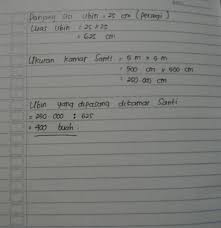 Panjang sisi ubin = 25 cm (persegi)
Luas ubin = 25 x 25
= 625 cm
Ukuran kamar Santi = 5 m x 5 m
= 500 cm x 500 cm
= 250 000 cm
Ubin yang dipasang dikamar Santi
= 250 000 : 625
= 400 buah